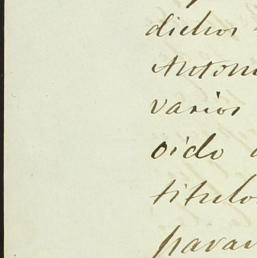 dichos
Antoni
varios
oido
titulo
parar